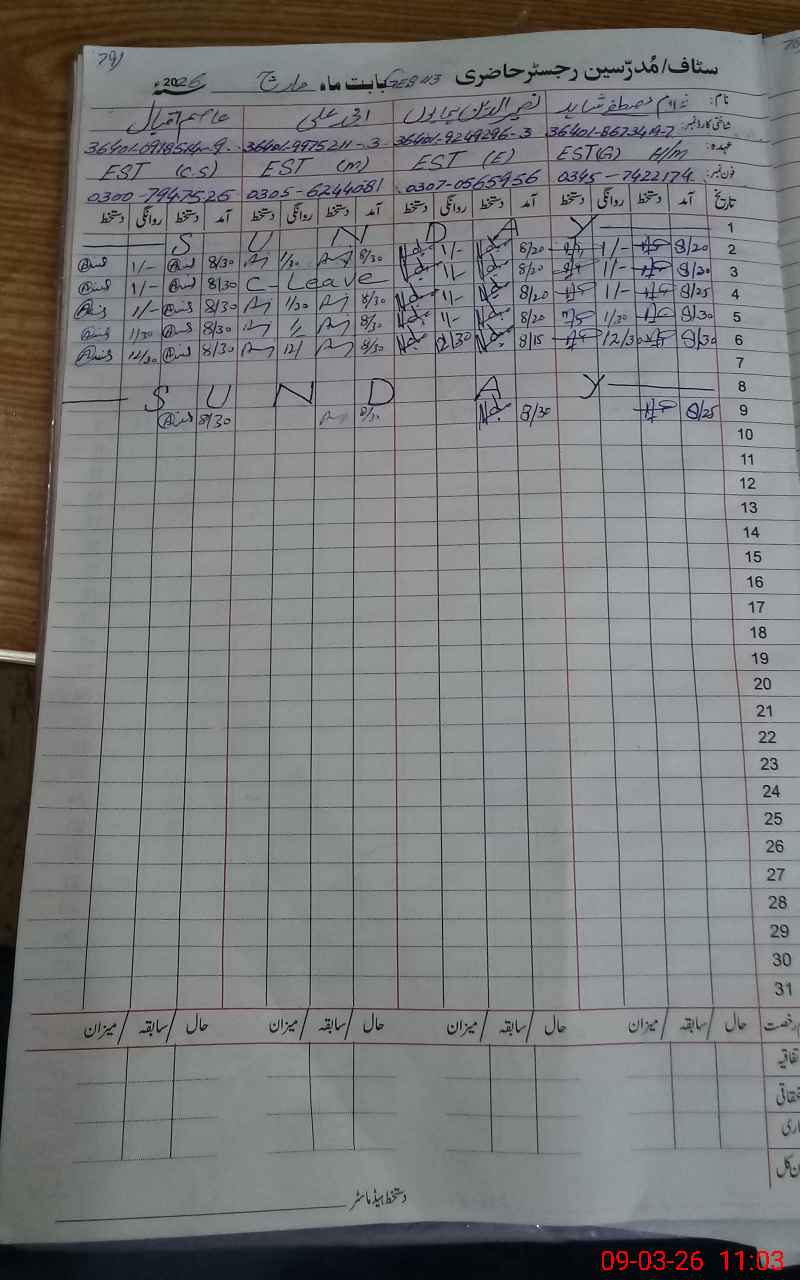 791
سٹاف/مُدرّسین رجسٹر حاضری GES 43 بابت ماہ مارچ 2026ء
نام: غلام مصطفیٰ شاہد نصیر الدین ہمایوں علی عاصم اقبال
شناختی کارڈ نمبر: 36401-8673419-7 36401-9249296-3 36401-9975211-3 36401-0918514-9
عہدہ: EST(G) H/m EST (E) EST (m) EST (C.S)
فون نمبر: 0345-7422174 0307-0565956 0305-6244081 0300-7947526
تاریخ آمد دستخط روانگی دستخط آمد دستخط روانگی دستخط آمد دستخط روانگی دستخط آمد دستخط روانگی دستخط
1 S U N D A Y
2 8/20 1/- 8/20 1/- 8/30 1/30 8/30 1/-
3 8/20 1/- 8/20 1/- C-Leave 8/30 1/-
4 8/25 1/- 8/20 1/- 8/30 1/30 8/30 1/-
5 8/30 1/30 8/20 1/- 8/30 1/ 8/30 1/30
6 8/30 12/30 8/15 12/30 8/30 12/ 8/30 12/30
7
8 S U N D A Y
9 8/25 8/30 8/30 8/30
10
11
12
13
14
15
16
17
18
19
20
21
22
23
24
25
26
27
28
29
30
31
رخصت حال / سابقہ / میزان حال / سابقہ / میزان حال / سابقہ / میزان حال / سابقہ / میزان
دستخط ہیڈ ماسٹر
09-03-26 11:03